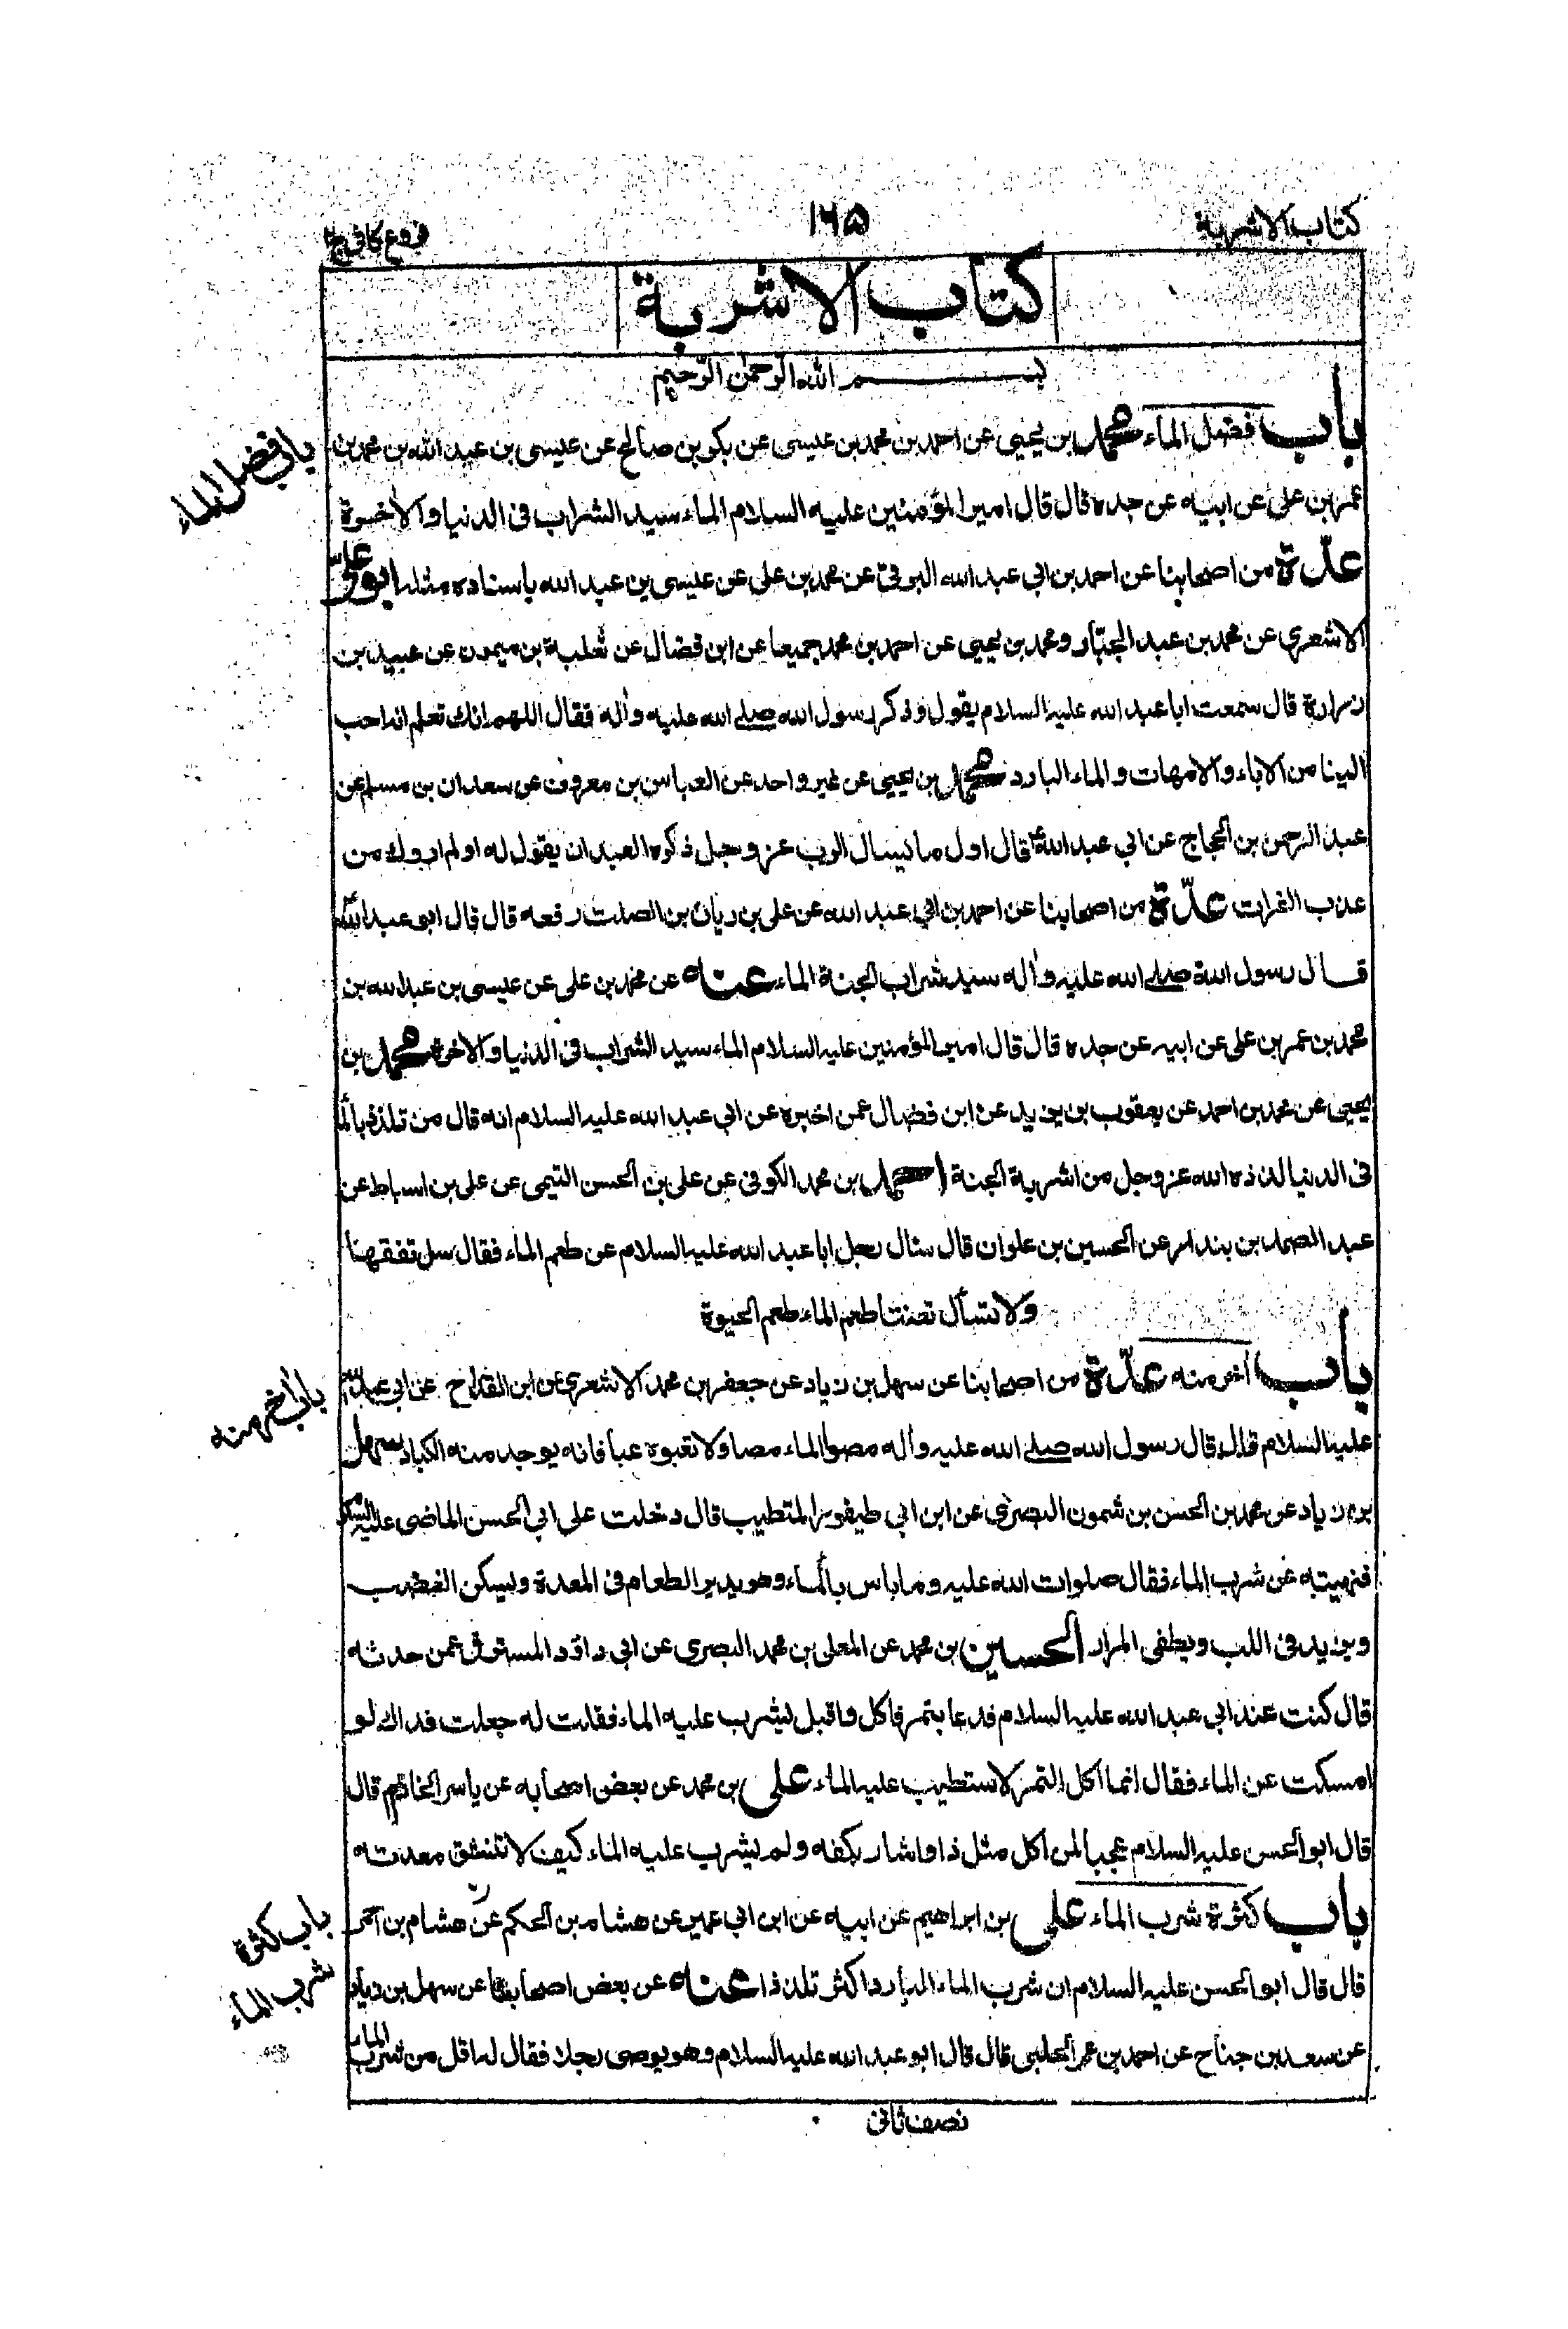 كتاب الاشربة
١٦٥
فروع كافى ج٢
كتاب الاشربة
بسم الله الرحمن الرحيم
باب فضل الماء محمد بن يحيى عن احمد بن محمد بن عيسى عن بكر بن صالح عن عيسى بن عبد الله بن محمد بن
باب فضل الماء
عمر بن على عن ابيه عن جده قال قال امير المؤمنين عليه السلام الماء سيد الشراب فى الدنيا والاخرة
عدّة من اصحابنا عن احمد بن ابي عبد الله البرقى عن محمد بن على عن عيسى بن عبد الله باسناده مثله ابو على
الاشعرى عن محمد بن عبد الجبّار ومحمد بن يحيى عن احمد بن محمد جميعا عن ابن فضال عن ثعلبة بن ميمون عن عبيد بن
زرارة قال سمعت ابا عبد الله عليه السلام يقول وذكر رسول الله صلى الله عليه واله فقال اللهم انك تعلم انه احب
الينا من الاباء والامهات والماء البارد محمد بن يحيى عن غير واحد عن العباس بن معروف عن سعدان بن مسلم عن
عبد الرحمن بن الحجاج عن ابي عبد الله قال اول ما يسال الرب عز وجل ذكره العبد ان يقول له اولم اروك من
عذب الفرات عدّة من اصحابنا عن احمد بن ابي عبد الله عن على بن ريان بن الصلت رفعه قال قال ابو عبد الله
قال رسول الله صلى الله عليه واله سيد شراب الجنة الماء عنه عن محمد بن على عن عيسى بن عبد الله بن
محمد بن عمر بن على عن ابيه عن جده قال قال امير المؤمنين عليه السلام الماء سيد الشراب فى الدنيا والاخرة محمد بن
يحيى عن محمد بن احمد عن يعقوب بن يزيد عن ابن فضال عمن اخبره عن ابي عبد الله عليه السلام انه قال من تلذذ بالماء
فى الدنيا لذذه الله عز وجل من اشربة الجنة محمد بن محمد الكوفى عن على بن الحسن التيمى عن على بن اسباط عن
عبد الصمد بن بندار عن الحسين بن علوان قال سئال رجل ابا عبد الله عليه السلام عن طعم الماء فقال سل تفقها
ولا تسأل تعنتا طعم الماء طعم الحيوة
باب اخر منه عدّة من اصحابنا عن سهل بن زياد عن جعفر بن محمد الاشعرى عن ابن القداح عن ابي عبد الله
باب اخر منه
عليه السلام قال قال رسول الله صلى الله عليه واله مصوا الماء مصا ولا تعبوه عبا فانه يوجد منه الكباد سهل
بن زياد عن محمد بن الحسن بن شمون البصرى عن ابن ابي طيفور المتطيب قال دخلت على ابي الحسن الماضى عليه السلام
فنهيته عن شرب الماء فقال صلوات الله عليه وما باس بالماء وهو يدير الطعام فى المعدة ويسكن الغضب
ويزيد فى اللب ويطفى المرار الحسين بن محمد عن المعلى بن محمد البصرى عن ابي داؤد المسترق عمن حدثه
قال كنت عند ابي عبد الله عليه السلام فدعا بتمر فاكل واقبل يشرب عليه الماء فقلت له جعلت فداك لو
امسكت عن الماء فقال انما اكل التمر لاستطيب عليه الماء على بن محمد عن بعض اصحابه عن ياسر الخادم قال
قال ابو الحسن عليه السلام عجبا لمن اكل مثل ذا واشار بكفه ولم يشرب عليه الماء كيف لا تنشق معدته
باب كثرة شرب الماء على بن ابراهيم عن ابيه عن ابن ابي عمير عن هشام بن الحكم عن هشام بن احمر
باب كثرة
شرب الماء
قال قال ابو الحسن عليه السلام ان شرب الماء البارد اكثر تلذذا عنه عن بعض اصحابنا عن سهل بن زياد
عن سعد بن جناح عن احمد بن عمر الحلبى قال قال ابو عبد الله عليه السلام وهو يوصى رجلا فقال له اقل من شرب الماء
نصف ثانى